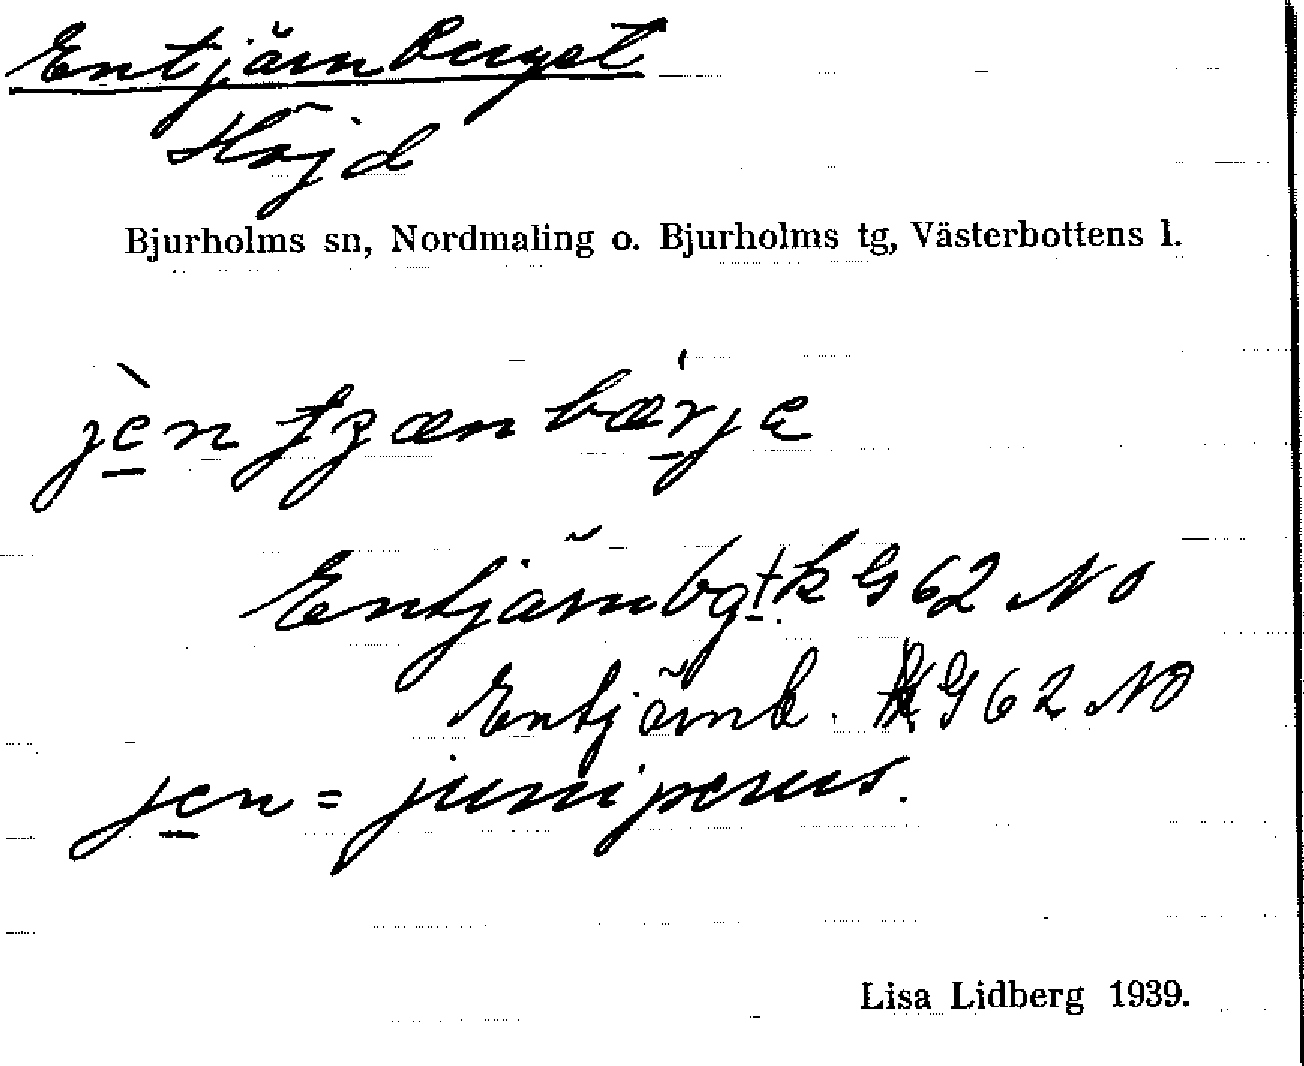 Entjärnberget
Höjd
Bjurholms sn, Nordmaling o. Bjurholms tg, Västerbottens l.
jèn tʒæn bærja
Entjärnbgt. k G 62 NO
Entjärnb. G 62 NO
jen = juniperus.
Lisa Lidberg 1939.